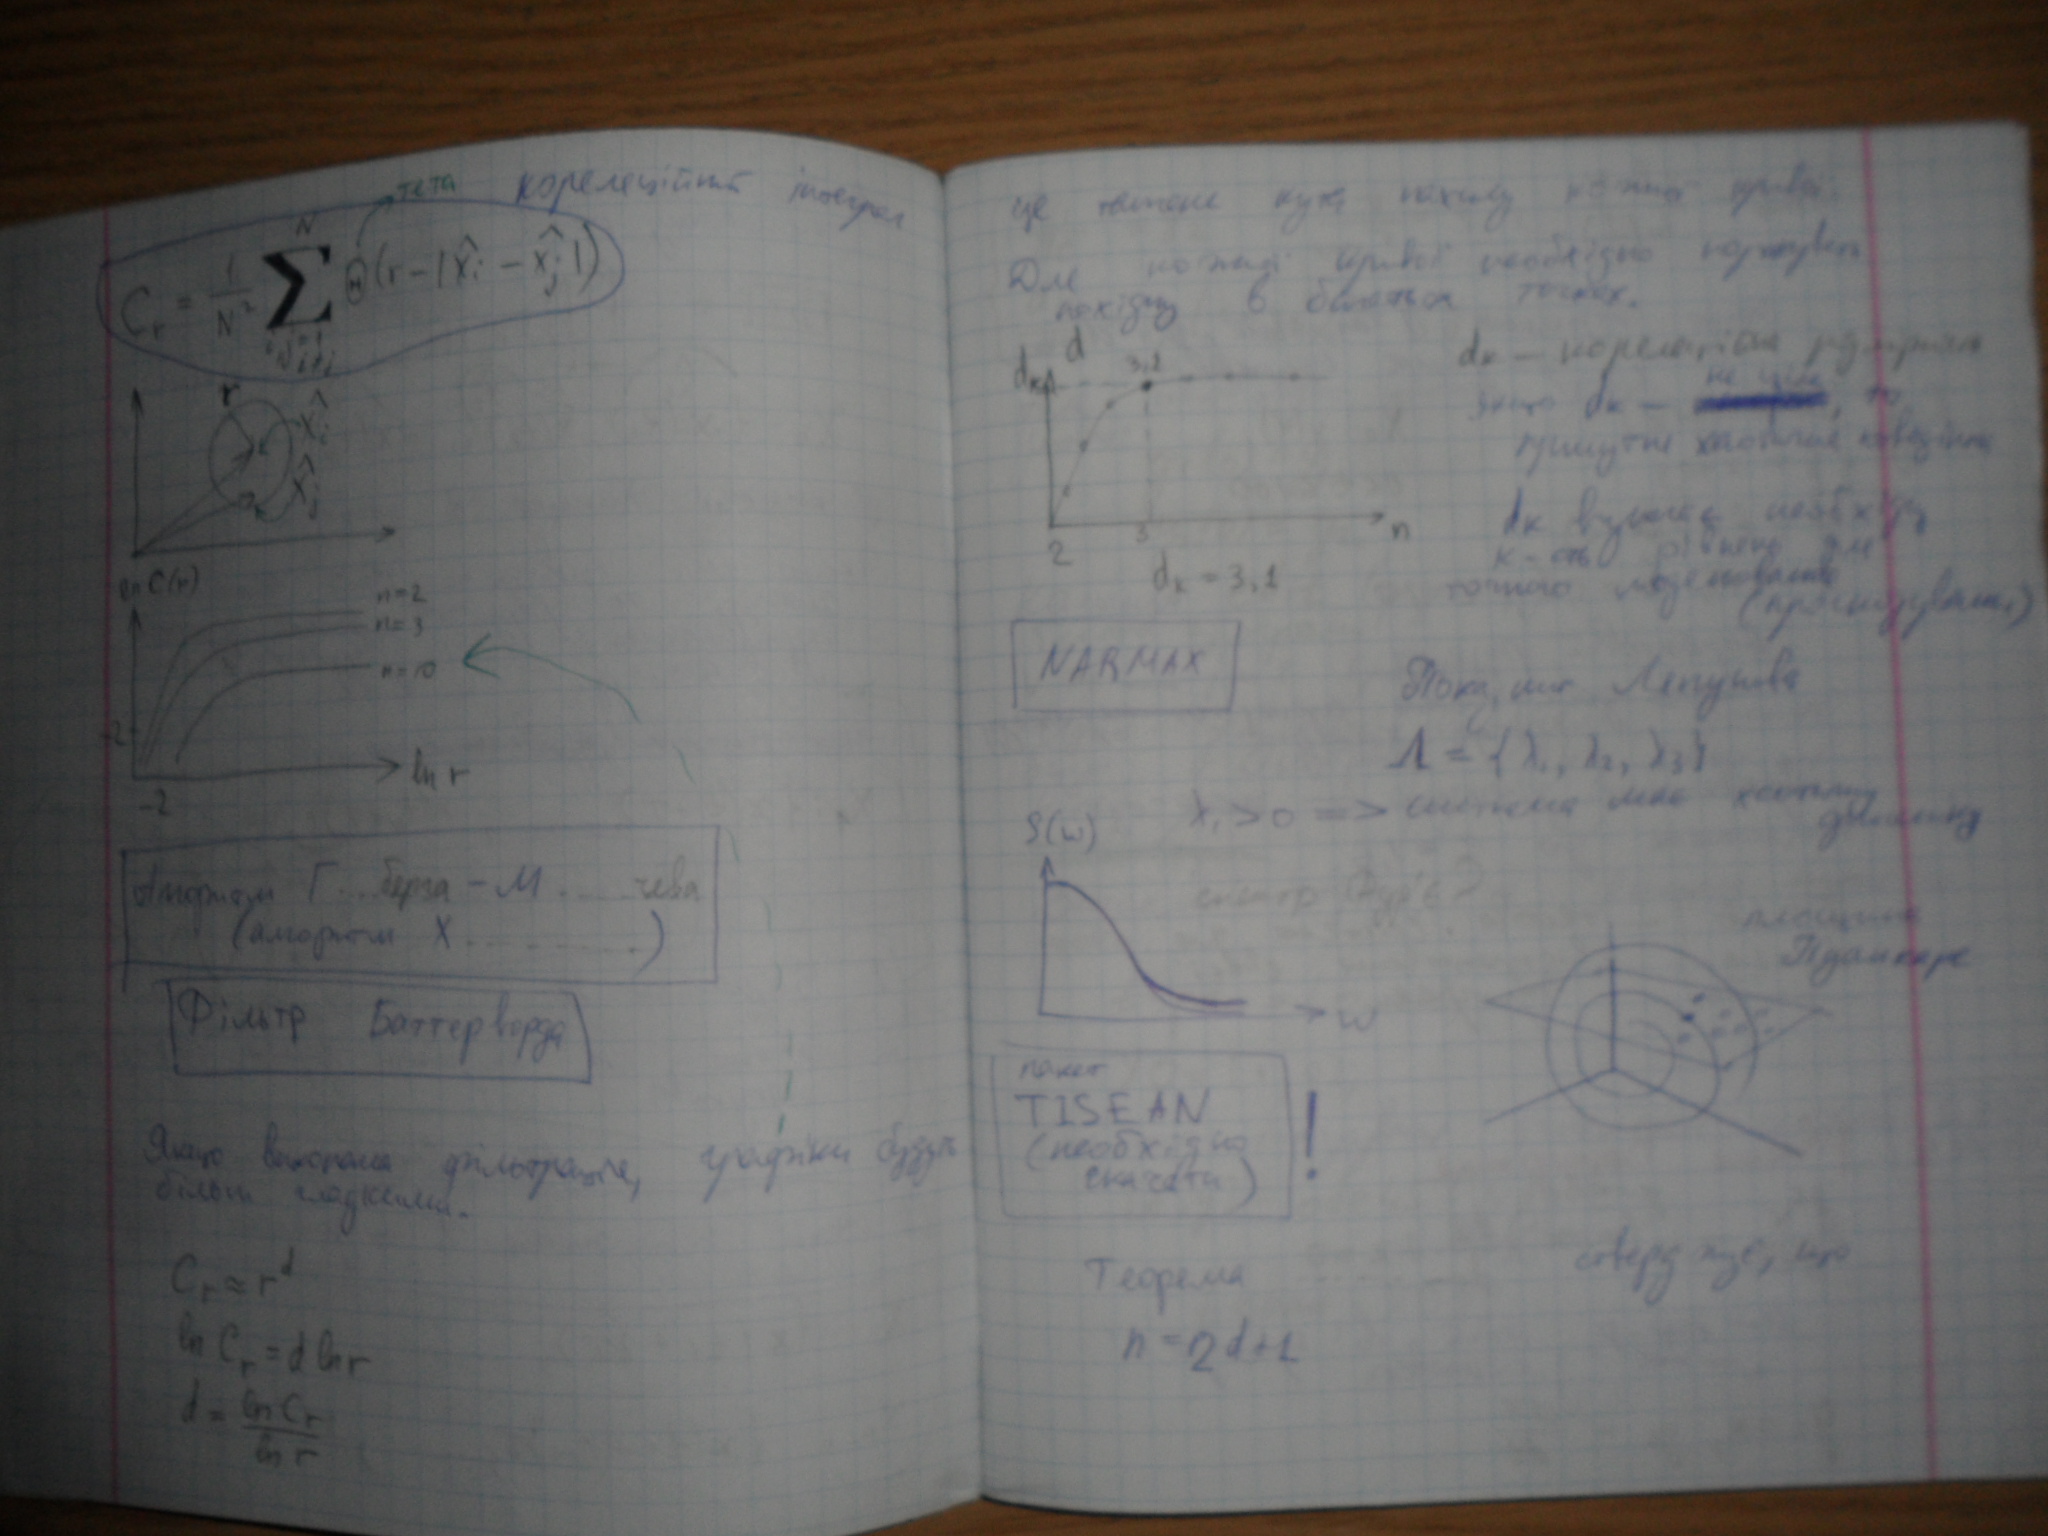 тета кореляційний інтеграл
C_r = 1/N² Σ Θ(r - |x̂_i - x̂_j|)
N
i,j=1
i≠j
r
x̂_i
x̂_j
ln C(r)
n=2
n=3
n=10
-2
ln r
-2
Алгоритм Г...берга - М.....чева
(алгоритм Х..........)
Фільтр Баттерворда
Якщо виконана фільтрація, графіки будуть
більш гладкими.
C_r ≈ r^d
ln C_r = d ln r
d = ln C_r / ln r
це тангенс кута нахилу кожної кривої.
Для кожної кривої необхідно
похідну в багатьох точках.
d_k
d
3,1
2
3
n
d_k = 3,1
d_k – кореляційна розмірність
якщо d_k – не ціле, то
присутня хаотична поведінка
d_k визначає необхідну
к-сть рівнянь для
точного моделювання
(прогнозування)
NARMAX
Показник Ляпунова
Λ = {λ₁, λ₂, λ₃}
λ₁ > 0 => система має хаотичну
динаміку
S(w)
спектр Фур'є?
w
площина
Пуанкаре
пакет
TISEAN
(необхідно
скачати)
!
Теорема ........ стверджує, що
n = 2d+1